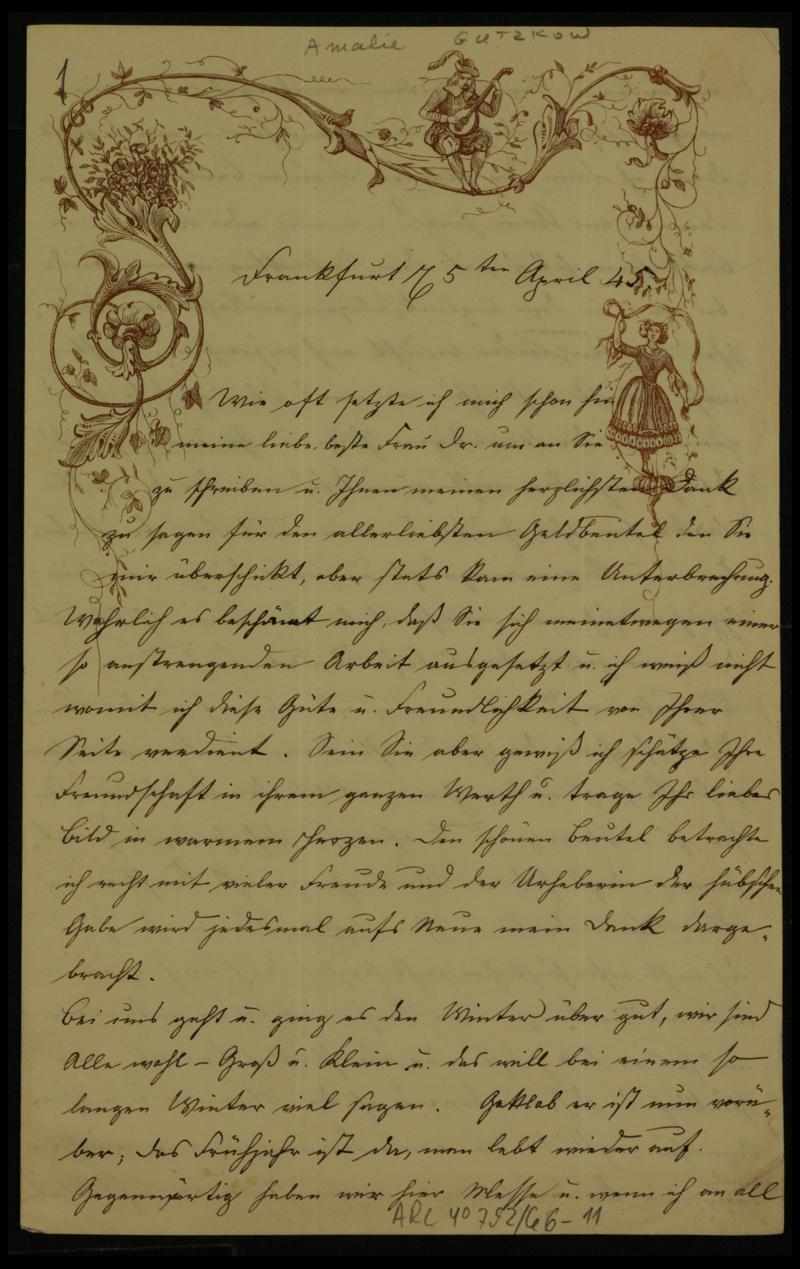 Amalie Gutzkow
1
Frankfurt 5ten April 45.
Wie oft setzte ich mich schon hin
meine liebe, beste Frau Dr. um an Sie
zu schreiben u. Ihnen meinen herzlichsten Dank
zu sagen für den allerliebsten Geldbeutel den Sie
mir überschikt, aber stets kam eine Unterbrechung.
Wahrlich es beschämt mich, daß Sie sich meinetwegen einer
so anstrengenden Arbeit ausgesetzt u. ich weiß nicht
womit ich diese Güte u. Freundlichkeit von Ihrer
Seite verdient. Sein Sie aber gewiß ich schätze Ihre
Freundschaft in ihrem ganzen Werth u. trage Ihr liebes
Bild in warmem Herzen. Den schönen Beutel betrachte
ich recht mit vieler Freude und der Urheberin der hübschen
Gabe wird jedesmal aufs Neue mein Dank darge-
bracht.
Bei uns geht u. ging es den Winter über gut, wir sind
Alle wohl – Groß u. Klein u. das will bei einem so
langen Winter viel sagen. Gottlob er ist nun vorü-
ber; das Frühjahr ist da, man lebt wieder auf.
Gegenwärtig haben wir hier Messe u. wenn ich an all
ARC 4o 792/66-11